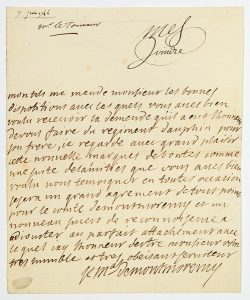 mr le Tourneur
mon fils me mende monsieur les bonnes
dispositions avec les quels vous avez bien
voulu recevoir la demende quil a eut lhonneur
de vous faire du regiment dauphin pour
son frere, je regarde avec grand plaisir
cette nouvelle marques de bontes comme
une suite de lamitiés que vous avez bien
voulu nous temoigner en toutte occasion
se sera un grand agrement de tout point
pour le comte de montmorency et un
nouveau sujet de reconnoissence a
ajouter au parfait attachement avec
le quel jay lhonneur destre monsieur votre
tres humble et tres obeissant serviteur
le mal de montmorency